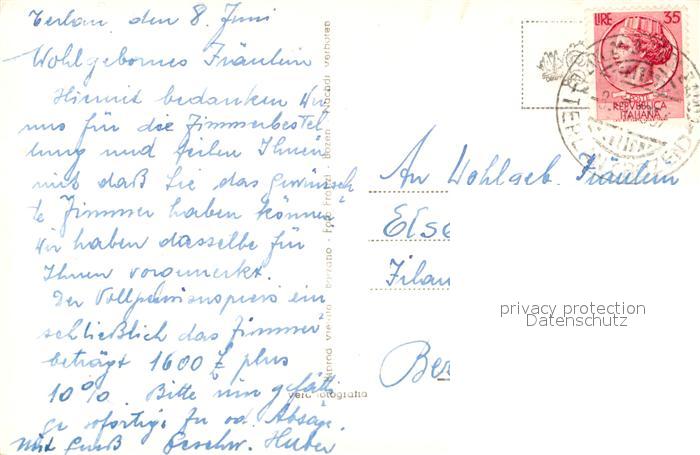 Terlan den 8. Juni
Wohlgebornes Fräulein
Hiermit bedanken Wir
uns für die Zimmerbestel
lung und teilen Ihnen
mit daß Sie das gewünsch
te Zimmer haben können,
wir haben dasselbe für
Ihnen vorgemerkt.
Der Vollpensionspreis ein
schließlich das Zimmer
beträgt 1600 £ plus
10%. Bitte um gefälli
ge sofortige Zu od. Absage.
Mit Gruß Geschw. Huber
Vera fotografia
LIRE 35
POSTE
REPVBBLICA
ITALIANA
An Wohlgeb. Fräulein
Else
Filau
Ber
privacy protection
Datenschutz